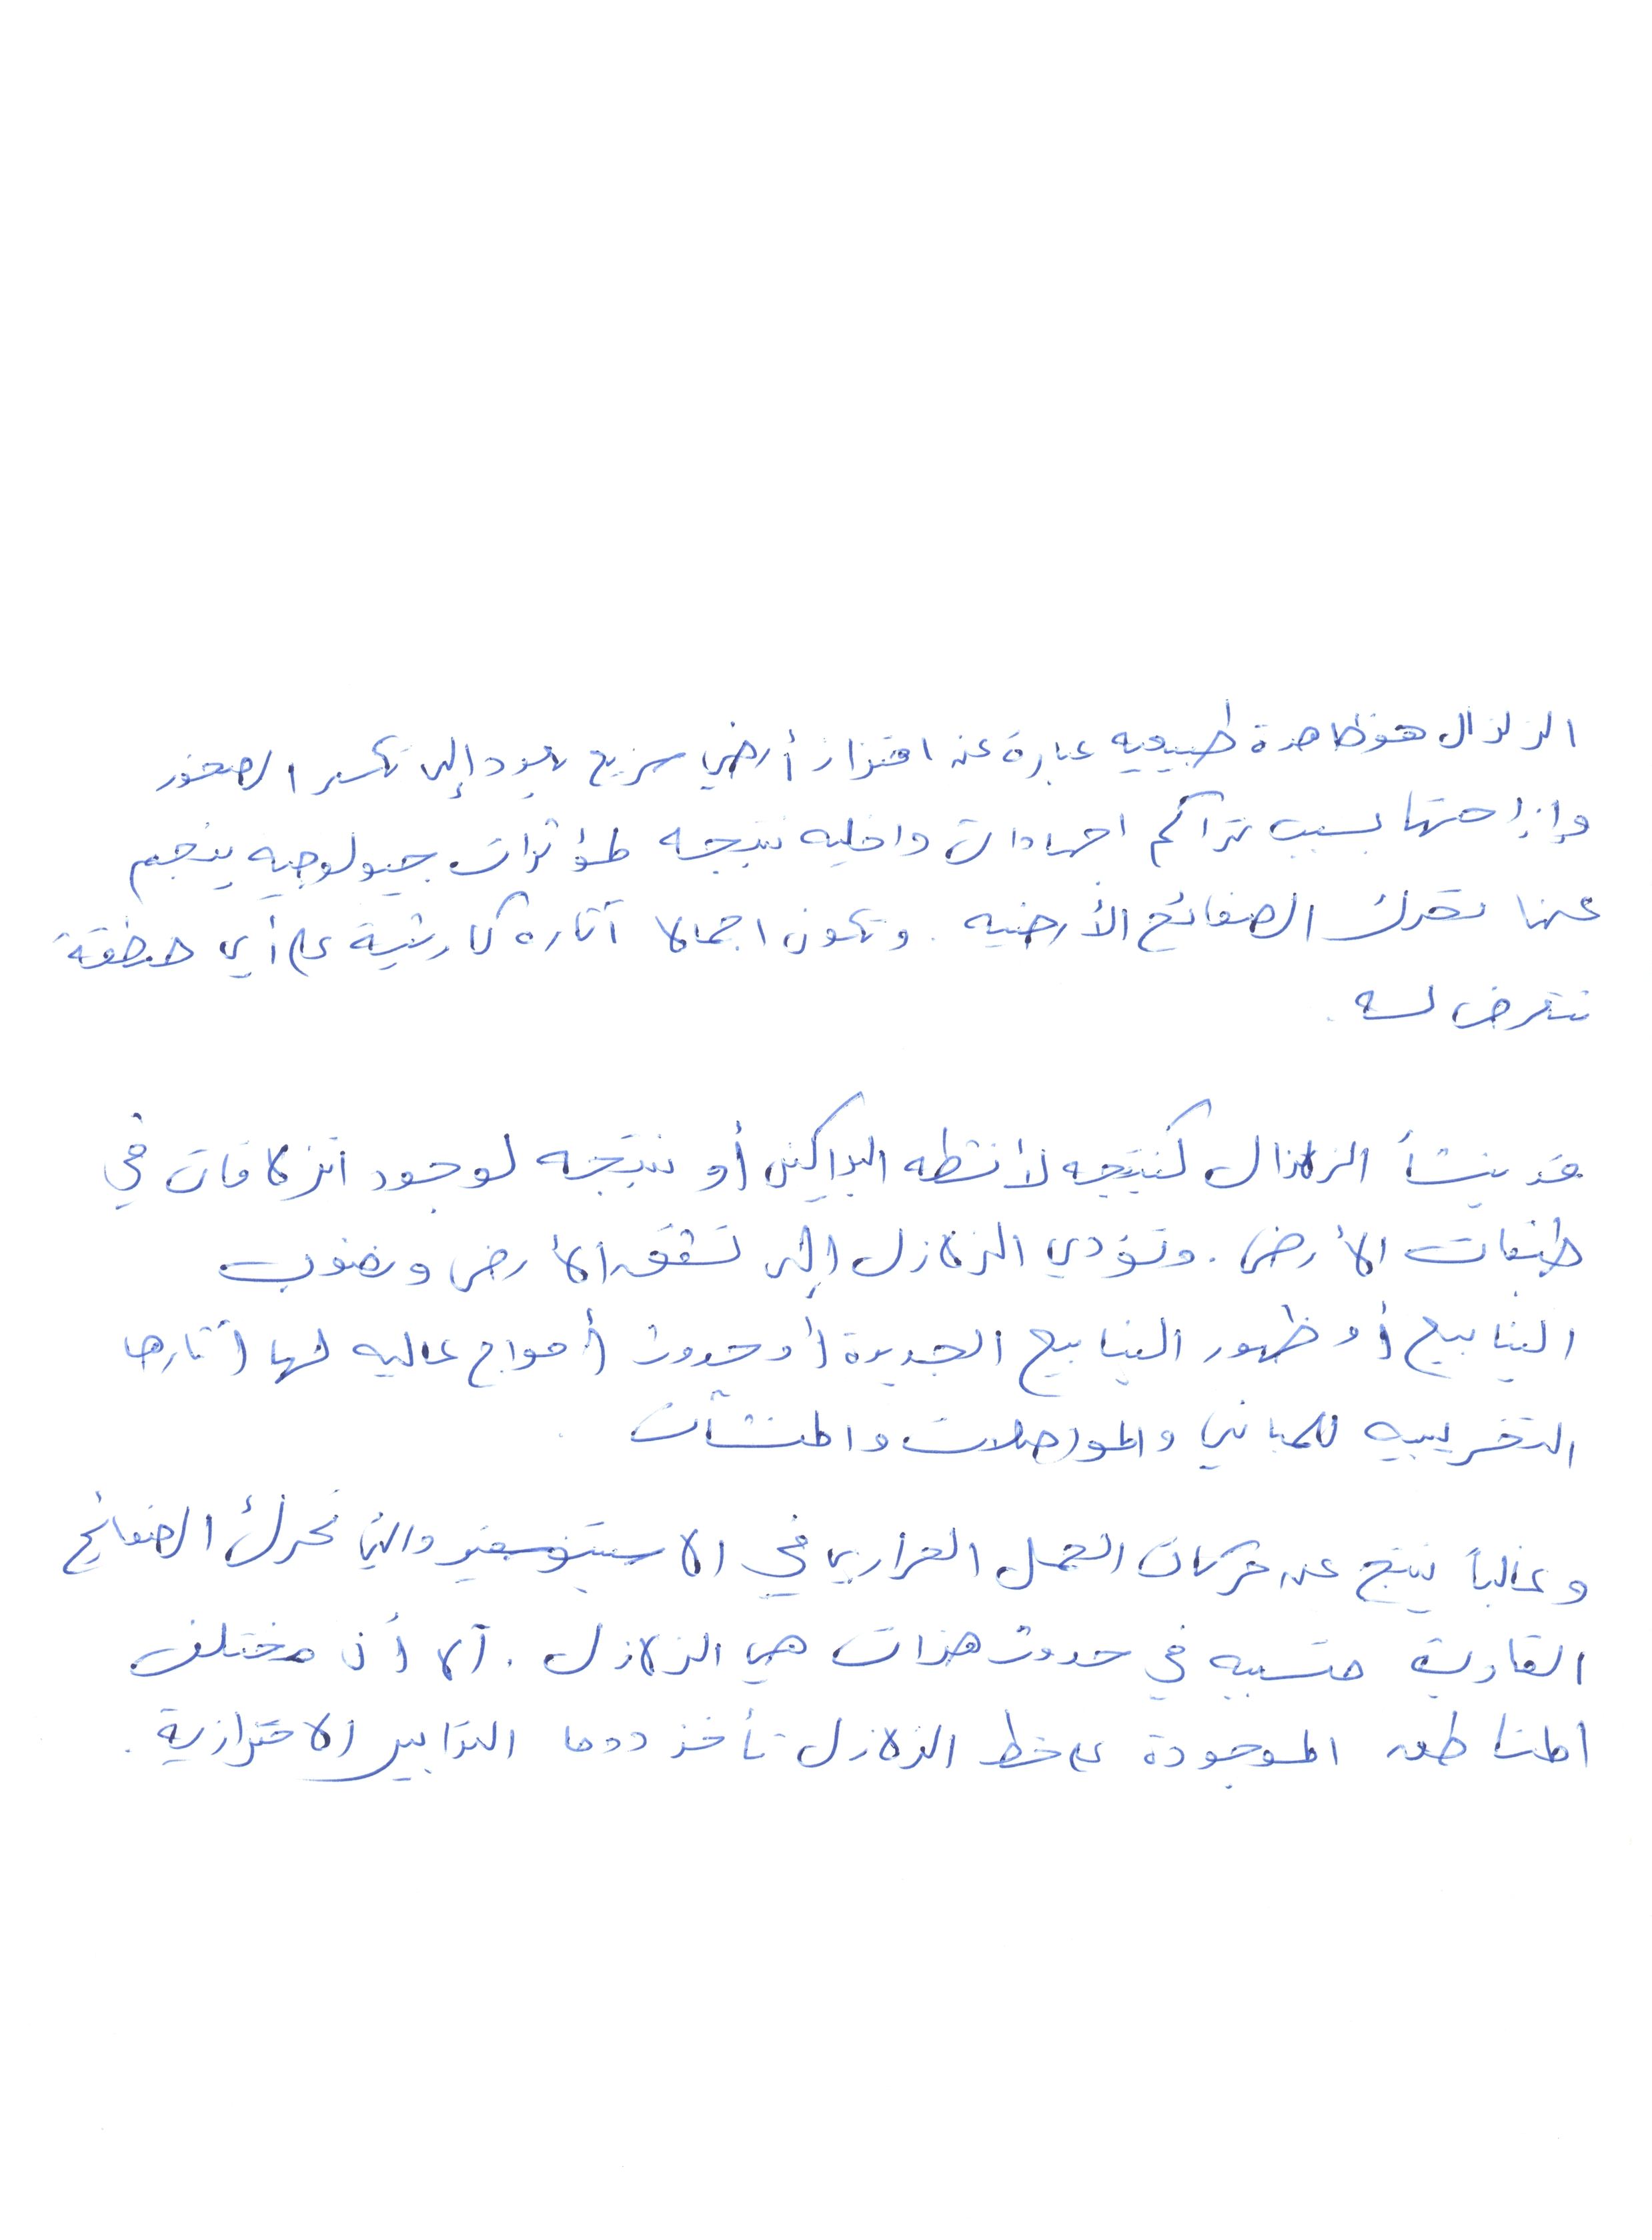 الزلزال هو ظاهرة طبيعيه عبارة عن اهتزاز أرضي سريع يعود إلى تكسر الصخور
وإزاحتها بسبب تراكم اجهادات داخليه نتيجه لمؤثرات جيولوجيه ينجم
عنها تحرك الصفائح الأرضيه. وتكون اجمالا آثاره كارثية على أي منطقة
تتعرض له.
قد ينشأ الزلازال كنتيجه لأنشطه البراكين أو نتيجه لوجود انزلاقات في
طبقات الأرض. وتؤدي الزلازل إلى تشقق الأرض ونضوب
الينابيع أو ظهور الينابيع الجديدة أو حدوث أمواج عاليه لها آثارها
التخريبيه للمباني والمواصلات والمنشآت
وغالباً ينتج عن حركات الحمل الحراري في الاستينوسفير والتي تحرك الصفائح
القارية متسببه في حدوث هزات هي الزلازل. آلا أن مختلف
المناطق الموجودة على خط الزلازل تأخذ دوما التدابير الاحترازية.